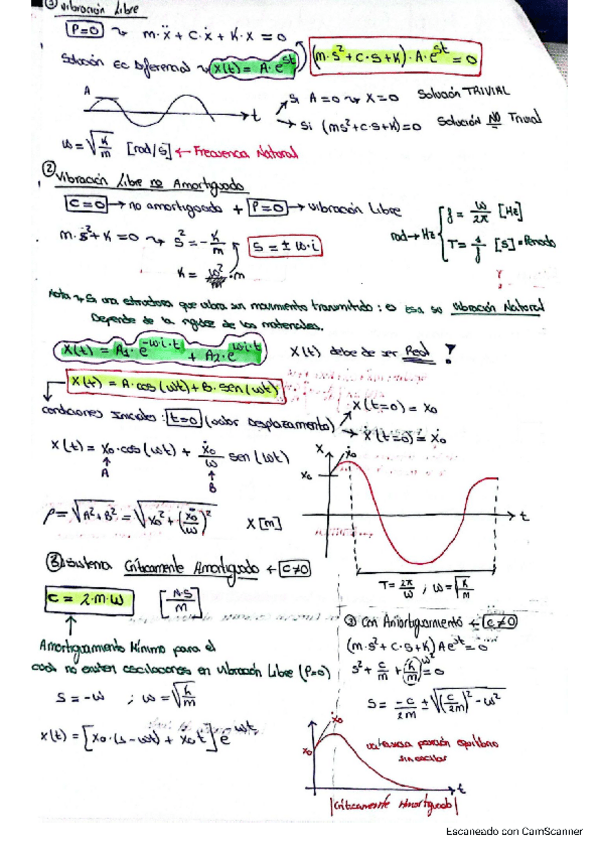 ① Vibración Libre
P=0 ⤳ m·ẍ + c·ẋ + K·x = 0
Solución Ec Diferencial ⤳ x(t) = A·e^st   (m·s²+c·s+K)·A·e^st = 0
A
t
Si A=0 ⤳ X=0 Solución TRIVIAL
Si (ms²+c·s+K)=0 Solución NO Trivial
ω = √(K/m) [rad/s] ← Frecuencia Natural
② Vibración Libre no Amortiguado
C=0 → no amortiguado + P=0 → Vibración Libre
m·s²+K=0 ⤳ s² = -K/m   S = ± ω·i
rad → Hz
f = ω/2π [Hz]
T = 1/f [S] = Periodo
K = ω²·m
Nota → Si una estructura que vibra sin movimiento transmitido: Esa su Vibración Natural
Depende de la rigidez de los materiales.
x(t) = A₁·e^-ω·i·t + A₂·e^ω·i·t   X(t) debe de ser Real !
x(t) = A·cos(ωt) + B·sen(ωt)
condiciones Iniciales: t=0 (valor Desplazamento)
X(t=0) = X₀
Ẋ(t=0) = Ẋ₀
X(t) = X₀·cos(ωt) + Ẋ₀/ω sen(ωt)
A
B
X
X₀
Ẋ₀
t
ρ = √(A²+B²) = √(X₀²+(Ẋ₀/ω)²)   X[m]
T = 2π/ω ; ω = √(K/m)
③ Sistema Críticamente Amortiguado + C≠0
C = 2·m·ω [N·S/m]
Amortiguamiento Mínimo para el
cual no existen oscilaciones en vibración Libre (P=0)
S = -ω ; ω = √(K/m)
x(t) = [X₀·(1-ωt) + Ẋ₀t] e^-ωt
Con Amortiguamiento + C≠0
(m·s²+c·s+K)Ae^st = 0
s² + c/m + (K/m)ω² = 0
S = -c/2m ± √((c/2m)² - ω²)
X₀
Ẋ₀
posición equilibrio
sin oscilar
t
|Críticamente Amortiguado|
Escaneado con CamScanner